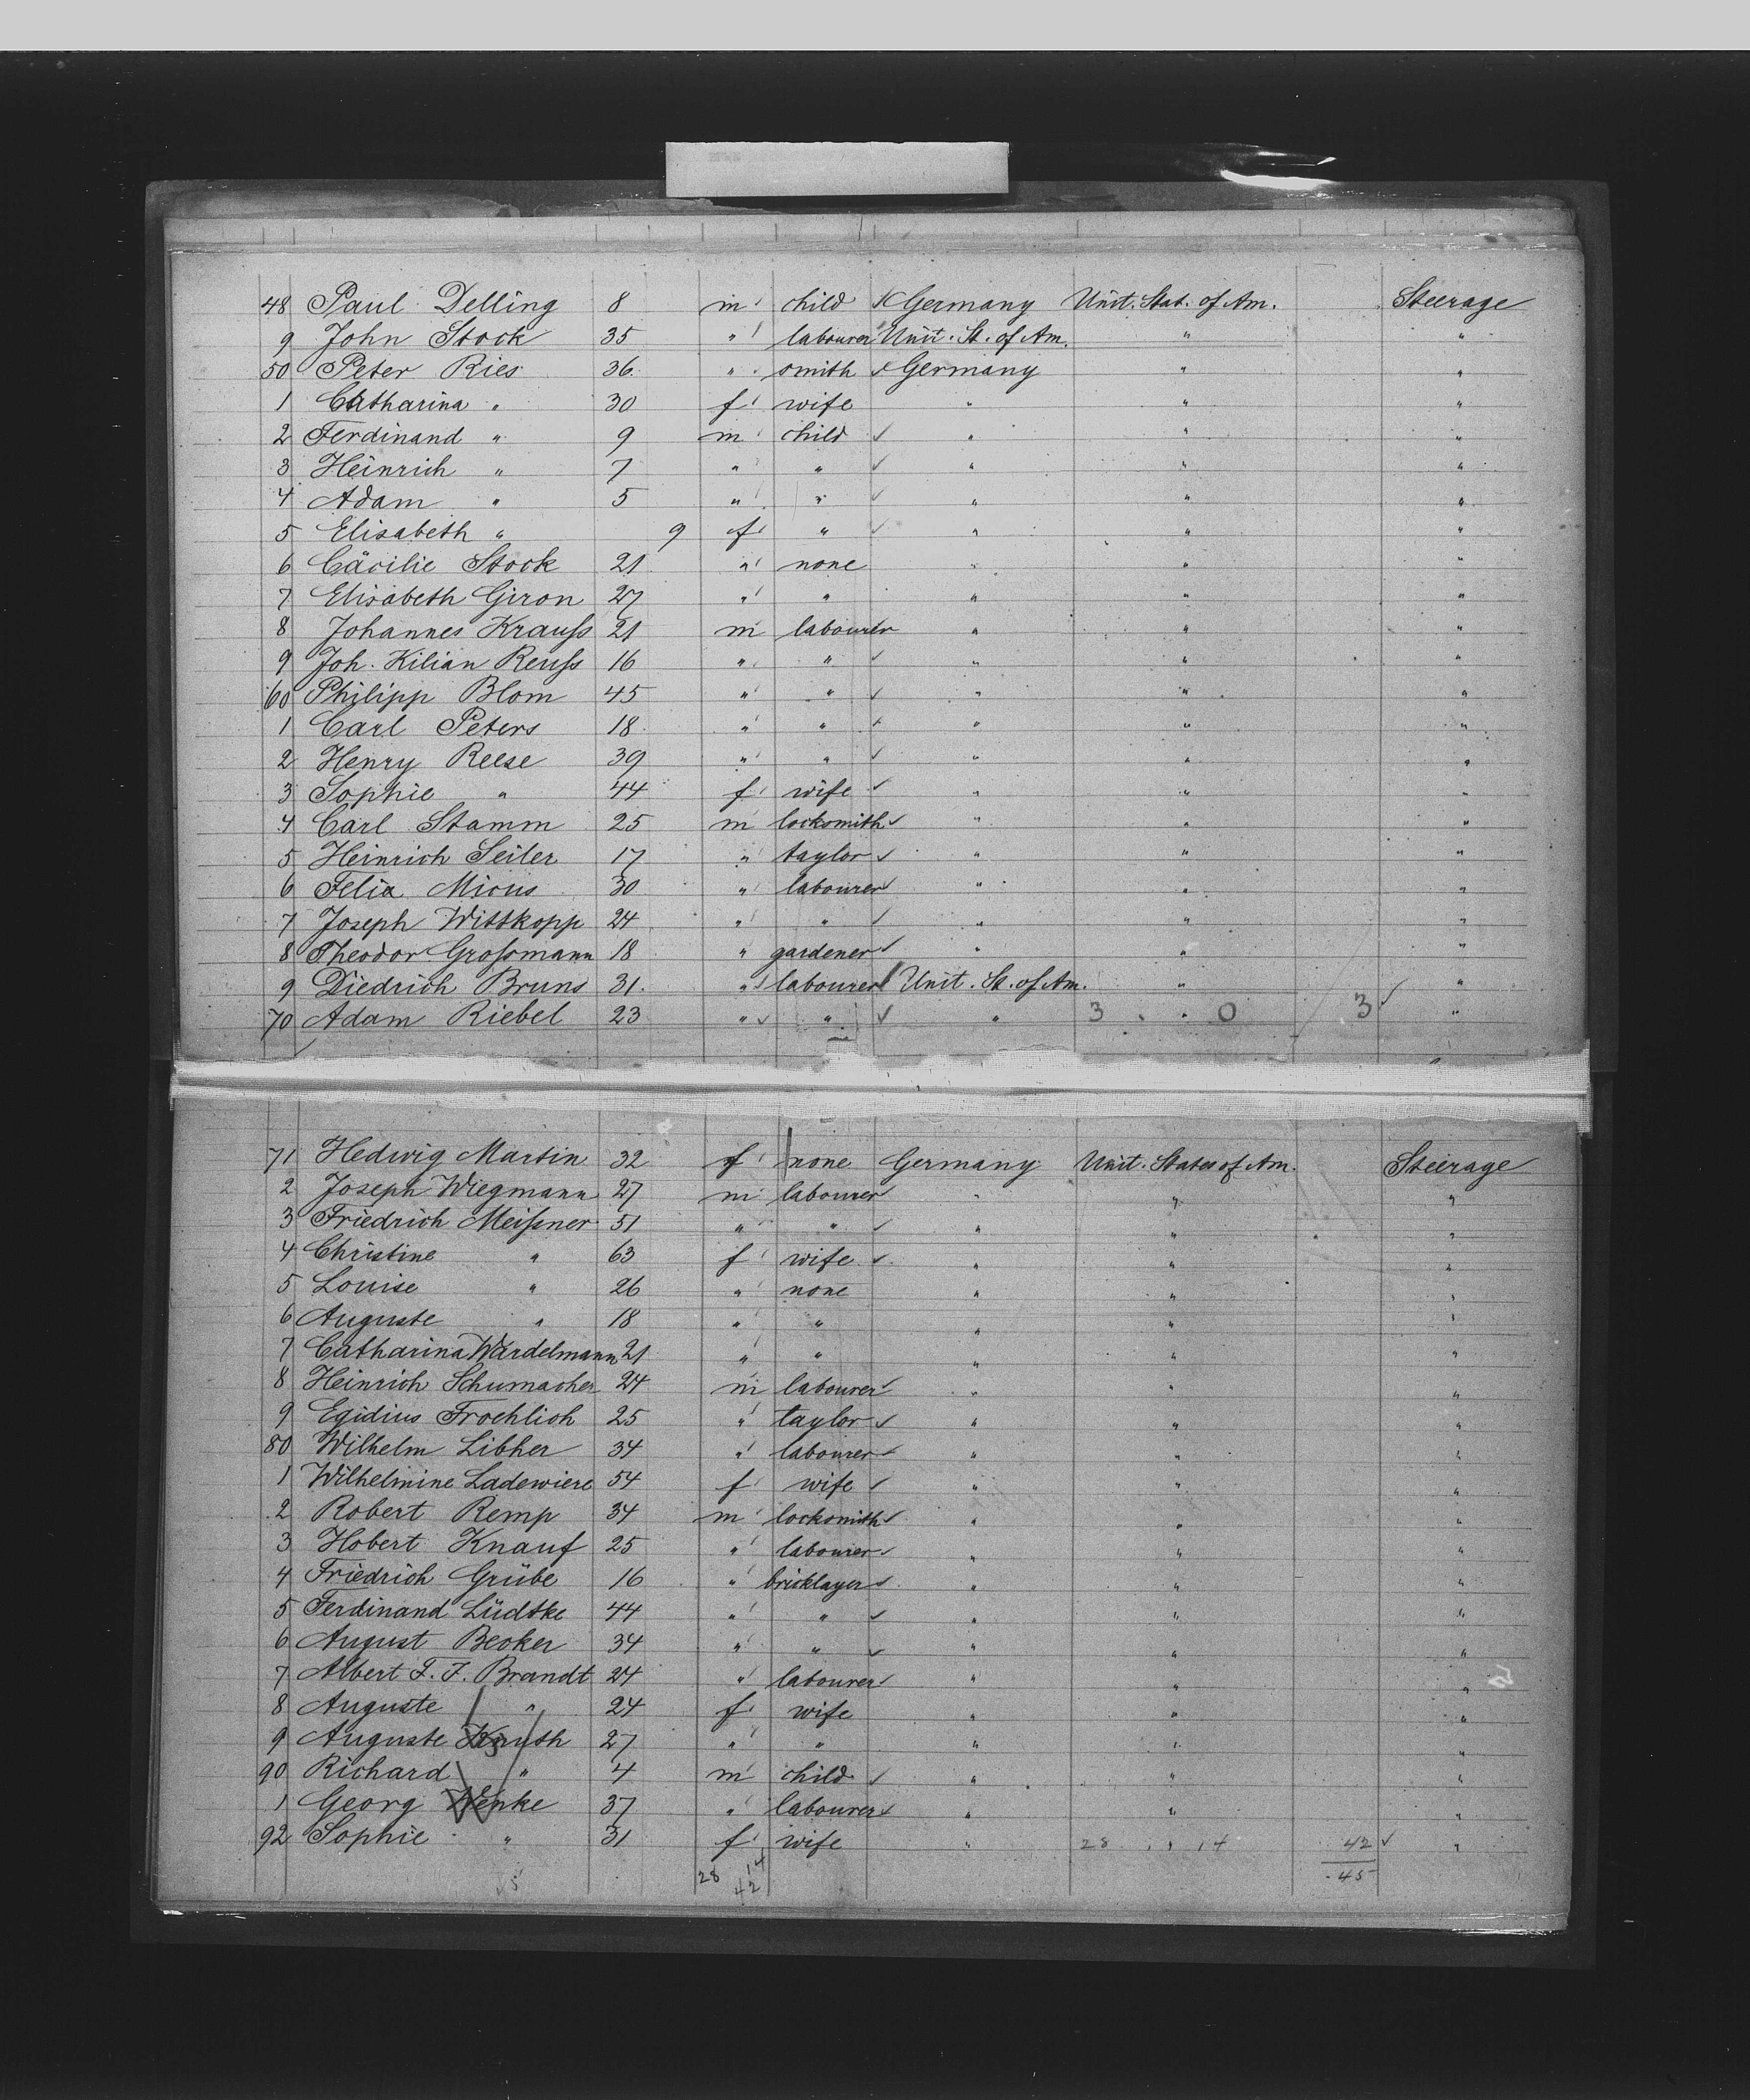 48 Paul Delling 8 m child Germany Unit. Stat. of Am. Steerage
9 John Stock 35 " labourer Unit. St. of Am. " "
50 Peter Ries 36. " smith Germany " "
1 Catharina " 30 f wife " " "
2 Ferdinand " 9 m child " " "
3 Heinrich " 7 " " " " "
4 Adam " 5 " " " " "
5 Elisabeth " 9 f " " " "
6 Cäcilie Stock 21 " none " " "
7 Elisabeth Giron 27 " " " " "
8 Johannes Krauss 21 m labourer " " "
9 Joh. Kilian Reuss 16 " " " " "
60 Philipp Blom 45 " " " " "
1 Carl Peters 18 " " " " "
2 Henry Reese 39 " " " " "
3 Sophie " 44 f wife " " "
4 Carl Stamm 25 m locksmith " " "
5 Heinrich Seiler 17 " taylor " " "
6 Felix Micus 30 " labourer " " "
7 Joseph Wittkopp 24 " " " " "
8 Theodor Grossmann 18 " gardener " " "
9 Diedrich Bruns 31. " labourer Unit. St. of Am. " "
70 Adam Riebel 23 " " " 3 " 0 3 "
71 Hedwig Martin 32 f none Germany Unit. States of Am. Steerage
2 Joseph Wiegmann 27 m labourer " " "
3 Friedrich Meissner 51 " " " " "
4 Christine " 63 f wife " " "
5 Louise " 26 " none " " "
6 Auguste " 18 " " " " "
7 Catharina Wardelmann 21 " " " " "
8 Heinrich Schumacher 24 m labourer " " "
9 Egidius Froehlich 25 " taylor " " "
80 Wilhelm Libher 34 " labourer " " "
1 Wilhelmine Ladewiere 54 f wife " " "
2 Robert Remp 34 m locksmith " " "
3 Hobert Knauf 25 " labourer " " "
4 Friedrich Grübe 16 " bricklayer " " "
5 Ferdinand Lüdtke 44 " " " " "
6 August Becker 34 " " " " "
7 Albert F. F. Brandt 24 " labourer " " "
8 Auguste " 24 f wife " " "
9 Auguste Knuth 27 " " " " "
90 Richard " 4 m child " " "
1 Georg Wenke 37 " labourer " " "
92 Sophie " 31 f wife " 28 " 14 42 "
28 14 45
42